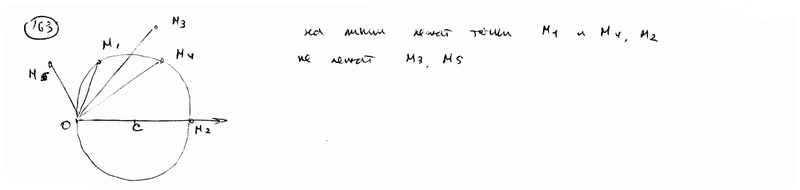 163
на линии лежат точки M1 и M4, M2
не лежат M3, M5
M3
M1
M4
M5
O
C
M2